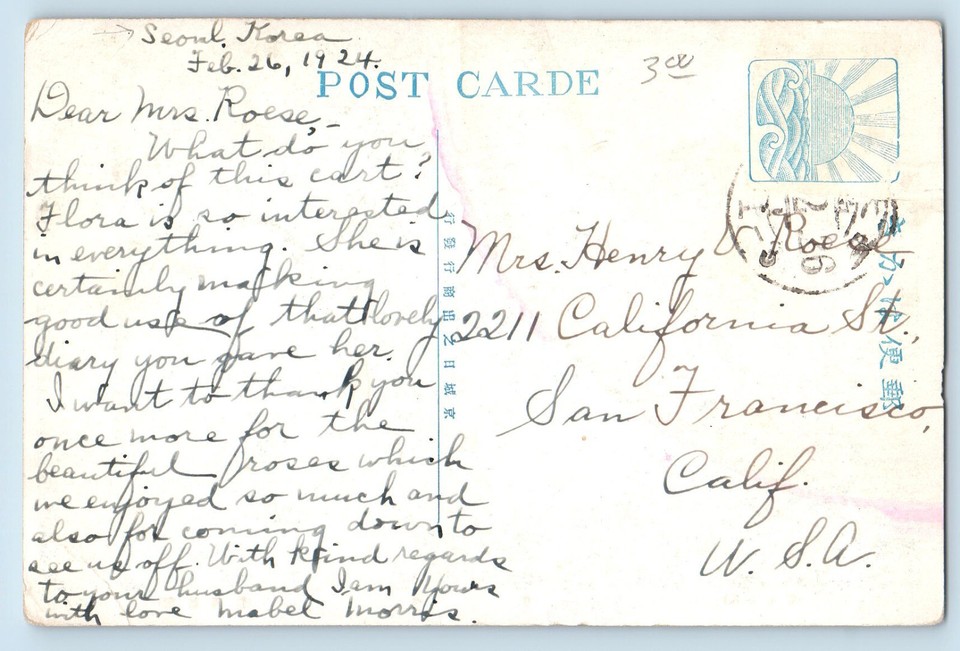 Seoul, Korea
Feb. 26, 1924.
POST CARDE
3 00
Dear Mrs. Roese,_
What do you
think of this cart?
Flora is so interested
in everything. She is
certainly making
good use of that lovely
diary you gave her.
I want to thank you
once more for the
beautiful roses which
we enjoyed so much and
also for coming down to
see us off. With kind regards
to your husband I am Yours
with love Mabel Morris.
京城日之出商行發行
Mrs. Henry Roese
2211 California St.,
San Francisco,
Calif.
U. S. A.
郵便はかき